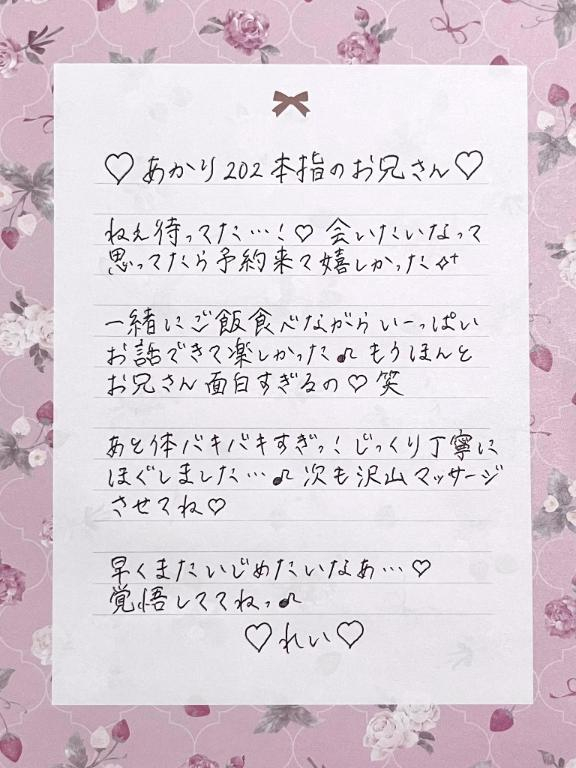 ♡あかり202本指のお兄さん♡
ねえ待ってた…！♡ 会いたいなって
思ってたら予約来て嬉しかった✧⁺
一緒にご飯食べながらいーっぱい
お話できて楽しかった♪ もうほんと
お兄さん面白すぎるの♡ 笑
あと体バキバキすぎっ！じっくり丁寧に
ほぐしました…♪ 次も沢山マッサージ
させてね♡
早くまたいじめたいなあ…♡
覚悟しててねっ♪
♡れい♡